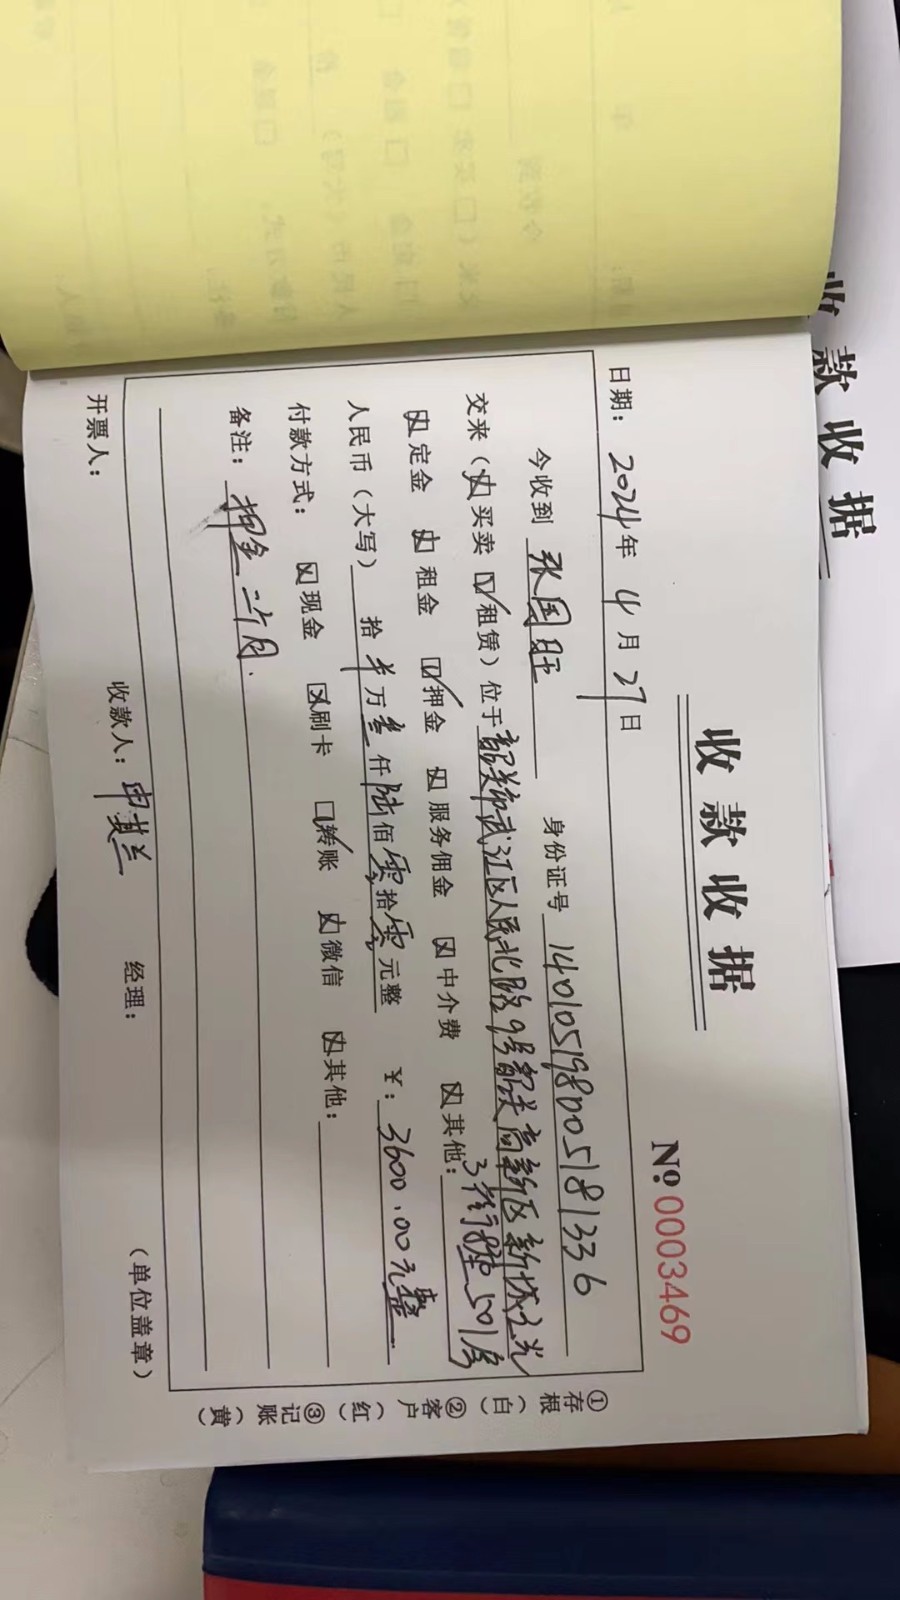 收款收据
№:00003469
日期：2024年4月27日
今收到 张国旺 身份证号 140105198005181336
交来（☒买卖 ☑租赁）位于韶关市武江区人民北路9号韶关高新区新城之光
☒定金 ☒租金 ☑押金 ☒服务佣金 ☒中介费 ☒其他：3 501房
人民币（大写） 拾 万叁仟陆佰零拾零元整 ¥：3600.00元整
付款方式： ☒现金 ☒刷卡 ☑转账 ☒微信 ☒其他：
备注：押金二个月.
开票人： 收款人：申其兰 经理： （单位盖章）
①存根（白） ②客户（红） ③记账（黄）
收款收据